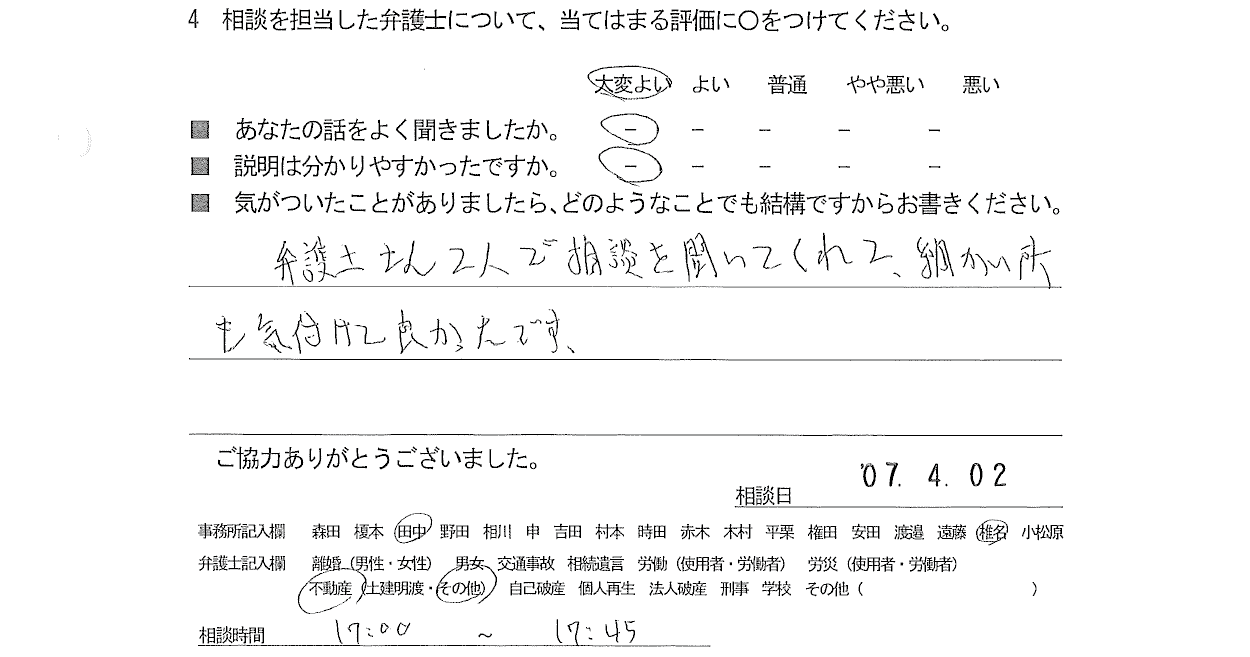 4 相談を担当した弁護士について、当てはまる評価に○をつけてください。
大変よい よい 普通 やや悪い 悪い
■ あなたの話をよく聞きましたか。 － － － － －
■ 説明は分かりやすかったですか。 － － － － －
■ 気がついたことがありましたら、どのようなことでも結構ですからお書きください。
弁護士さん2人で相談を聞いてくれて、細かい所
も気付けて良かったです、
ご協力ありがとうございました。
相談日 '07. 4. 02
事務所記入欄 森田 榎本 田中 野田 相川 申 吉田 村本 時田 赤木 木村 平栗 権田 安田 渡邉 遠藤 椎名 小松原
弁護士記入欄 離婚（男性・女性） 男女 交通事故 相続遺言 労働（使用者・労働者） 労災（使用者・労働者）
不動産（土建明渡・その他） 自己破産 個人再生 法人破産 刑事 学校 その他（ ）
相談時間 17:00 ～ 17:45